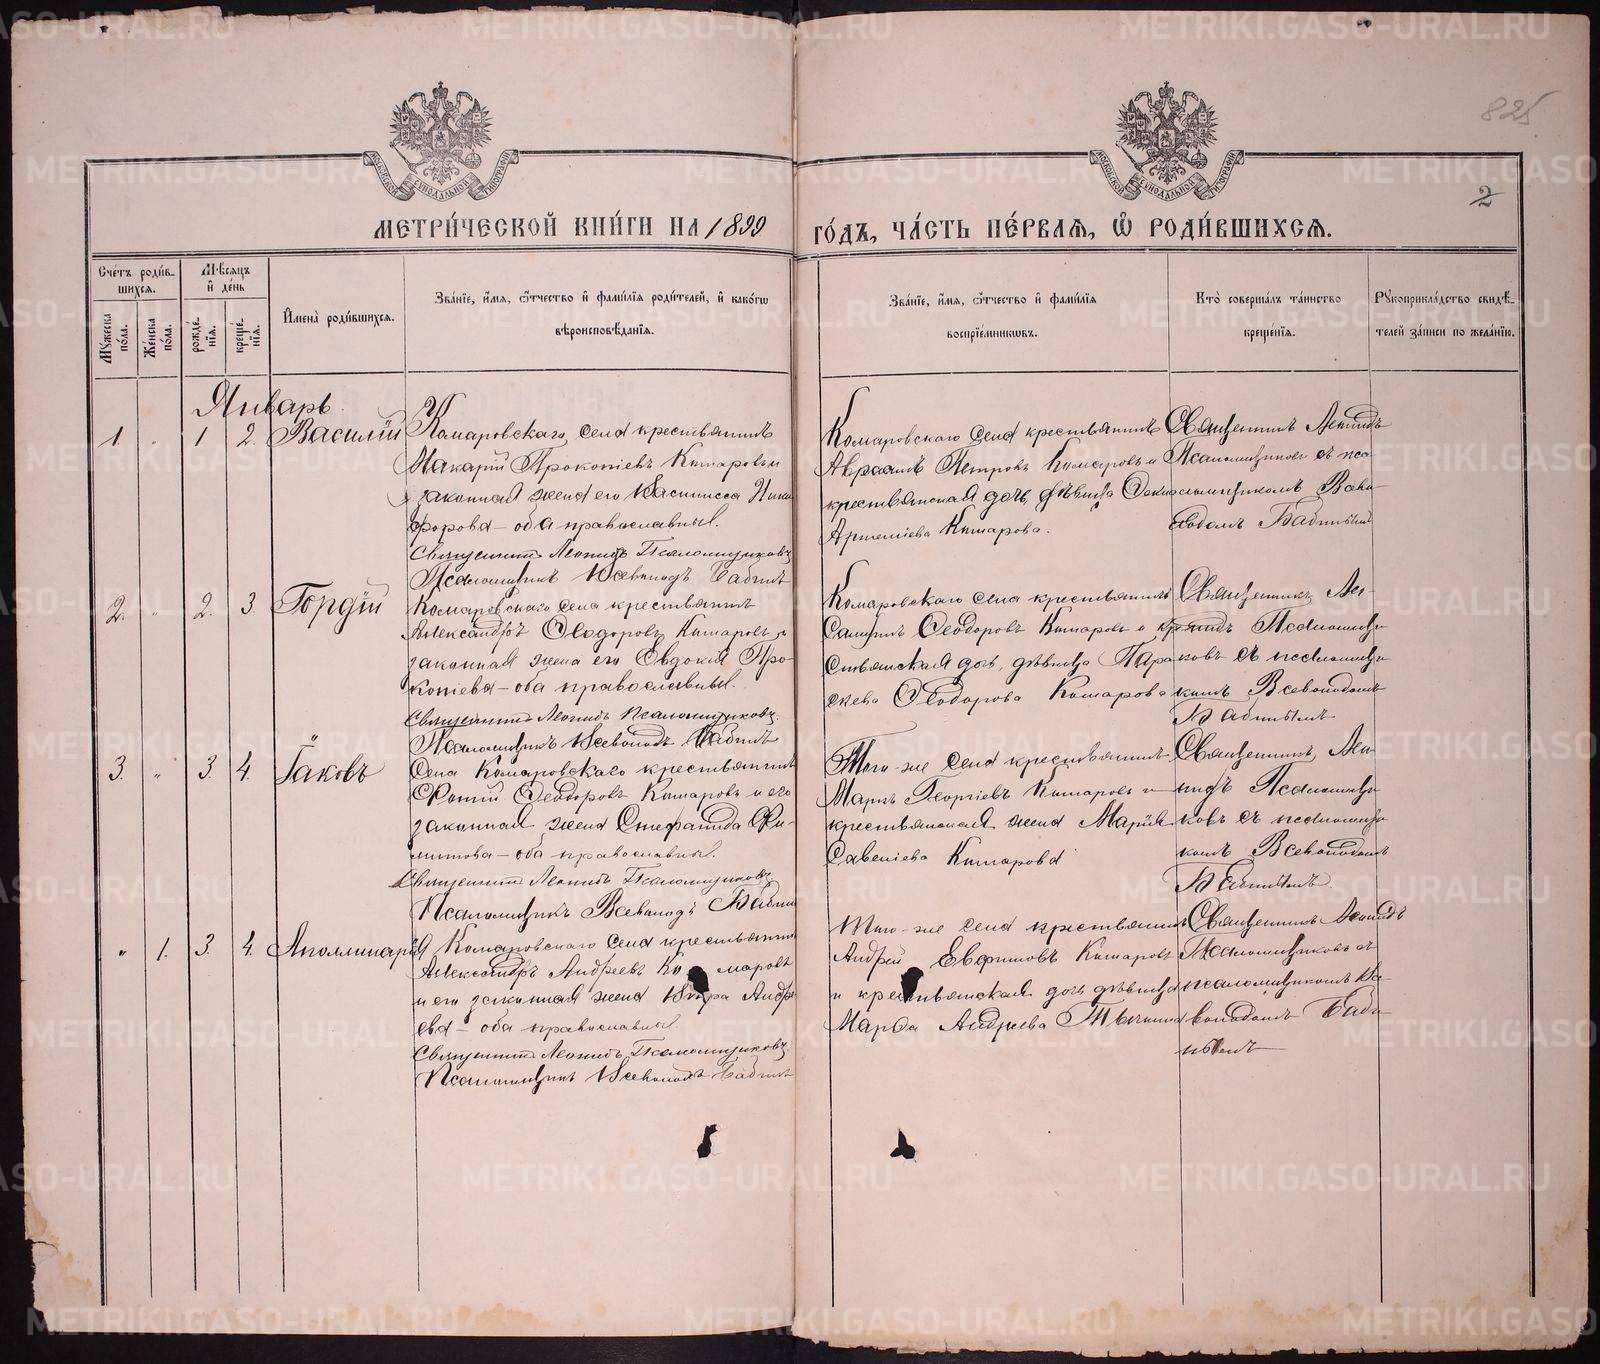 825
2
МОСКОВСКОЙ СѴНОДАЛЬНОЙ ТИПОГРАФІИ
МОСКОВСКОЙ СѴНОДАЛЬНОЙ ТИПОГРАФІИ
МЕТРИ́ЧЕСКОЙ КНИ́ГИ НА 1899 ГО́ДЪ, ЧА́СТЬ ПЕ́РВАѦ, Ѽ РОДИ́ВШИХСѦ.
Сче́тъ роди́в-
шихсѧ.
Мꙋ́жеска по́ла.
Же́нска по́ла.
Мѣ́сѧцъ и҆ де́нь
рожде́-
нїѧ.
креще́-
нїѧ.
И҆мена̀ роди́вшихсѧ.
Зва́нїе, и҆́мѧ, ѻ҆́тчество и҆ фами́лїѧ роди́телей, и҆ како́гѡ
вѣроисповѣ́данїѧ.
Зва́нїе, и҆́мѧ, ѻ҆́тчество и҆ фами́лїѧ
воспрїе́мникѡвъ.
Кто̀ соверша́лъ та́инство
креще́нїѧ.
Рꙋкоприкла́дство свидѣ́-
телей за́писи по жела́нїю.
Январь.
1. " 1 2. Василій
Комаровскаго села крестьянинъ
Макарій Прокопіевъ Комаровъ и
законная жена его Васписса Ники
форова – оба православныя.
Священникъ Леонидъ Псаломщиковъ
Псаломщикъ Всеволодъ Бабинъ
Комаровскаго села крестьянинъ
Авраамъ Петровъ Комаровъ и
крестьянская дочь, дѣвица
Артеміева Комарова.
Священникъ Леонидъ
Псаломщиковъ съ пса
ломщикомъ Все
володомъ Бабинымъ
2. " 2. 3 Гордій
Комаровскаго села крестьянинъ
Александръ Ѳеодоровъ Комаровъ и
законная жена его Евдокія Про-
копіева – оба православныя.
Священникъ Леонидъ Псаломщиковъ.
Псаломщикъ Всеволодъ Бабинъ
Комаровскаго села крестьянинъ
Ѳеодоровъ Комаровъ и кре
стьянская дочь, дѣвица Пара
скева Ѳеодорова Комарова
Священникъ Лео-
нидъ Псаломщи
ковъ съ псаломщи
комъ Всеволодомъ
Бабинымъ
3. " 3. 4. Іаковъ
Села Комаровскаго крестьянинъ
Фотій Ѳеодоровъ Комаровъ и его
законная жена Стефанида Фи-
липпова – оба православныя.
Священникъ Леонидъ Псаломщиковъ
Псаломщикъ Всеволодъ Бабинъ
Того-же села крестьянинъ
Георгіевъ Комаровъ и
крестьянская жена Марія
Савеліева Комарова
Священникъ Лео
нидъ Псаломщи
ковъ съ псаломщи
комъ Всеволодомъ
Бабинымъ.
" 1. 3. 4. Аполлинарія
Комаровскаго села крестьянинъ
Александръ Андреевъ Комаровъ
и его законная жена Вѣра Андре
ева – оба православныя
Священникъ Леонидъ Псаломщиковъ
Псаломщикъ Всеволодъ Бабинъ
Того-же села крестьянинъ
Андрей Евфимовъ Комаровъ
и крестьянская дочь дѣвица
Марфа Андреева
Священникъ Леонидъ
Псаломщиковъ съ
псаломщикомъ Все
володомъ Баби
нымъ
METRIKI.GASO-URAL.RU